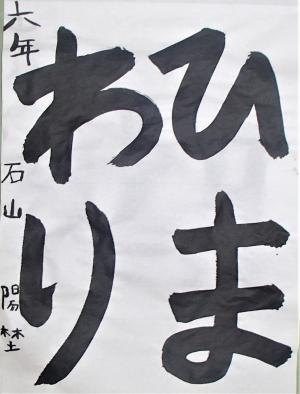 ひま
わり
六年 石山 陽埜